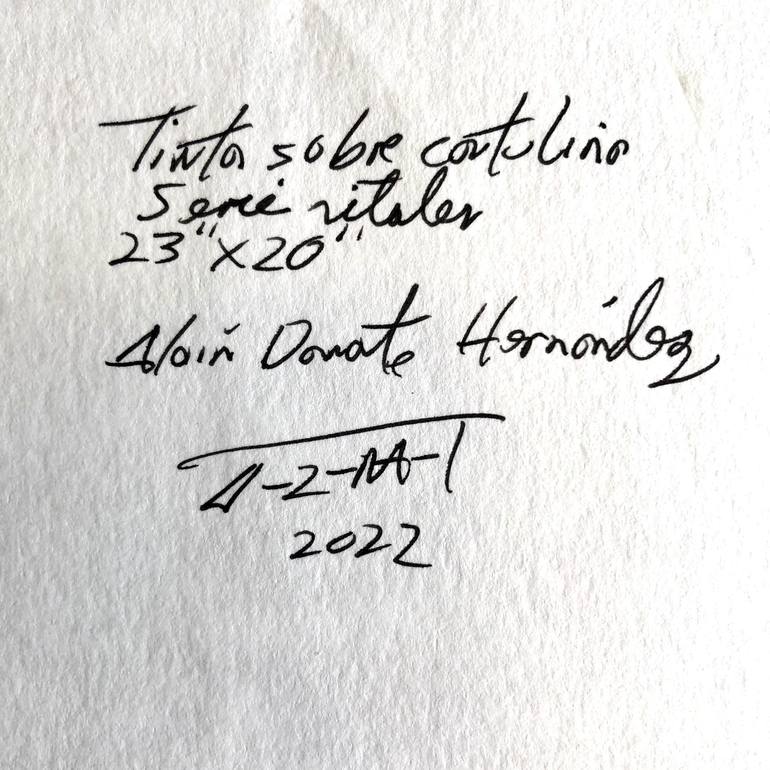 Tinta sobre cartulina
Serie vitales
23"x20"
Alain Donate Hernández
A-2-M-1
2022